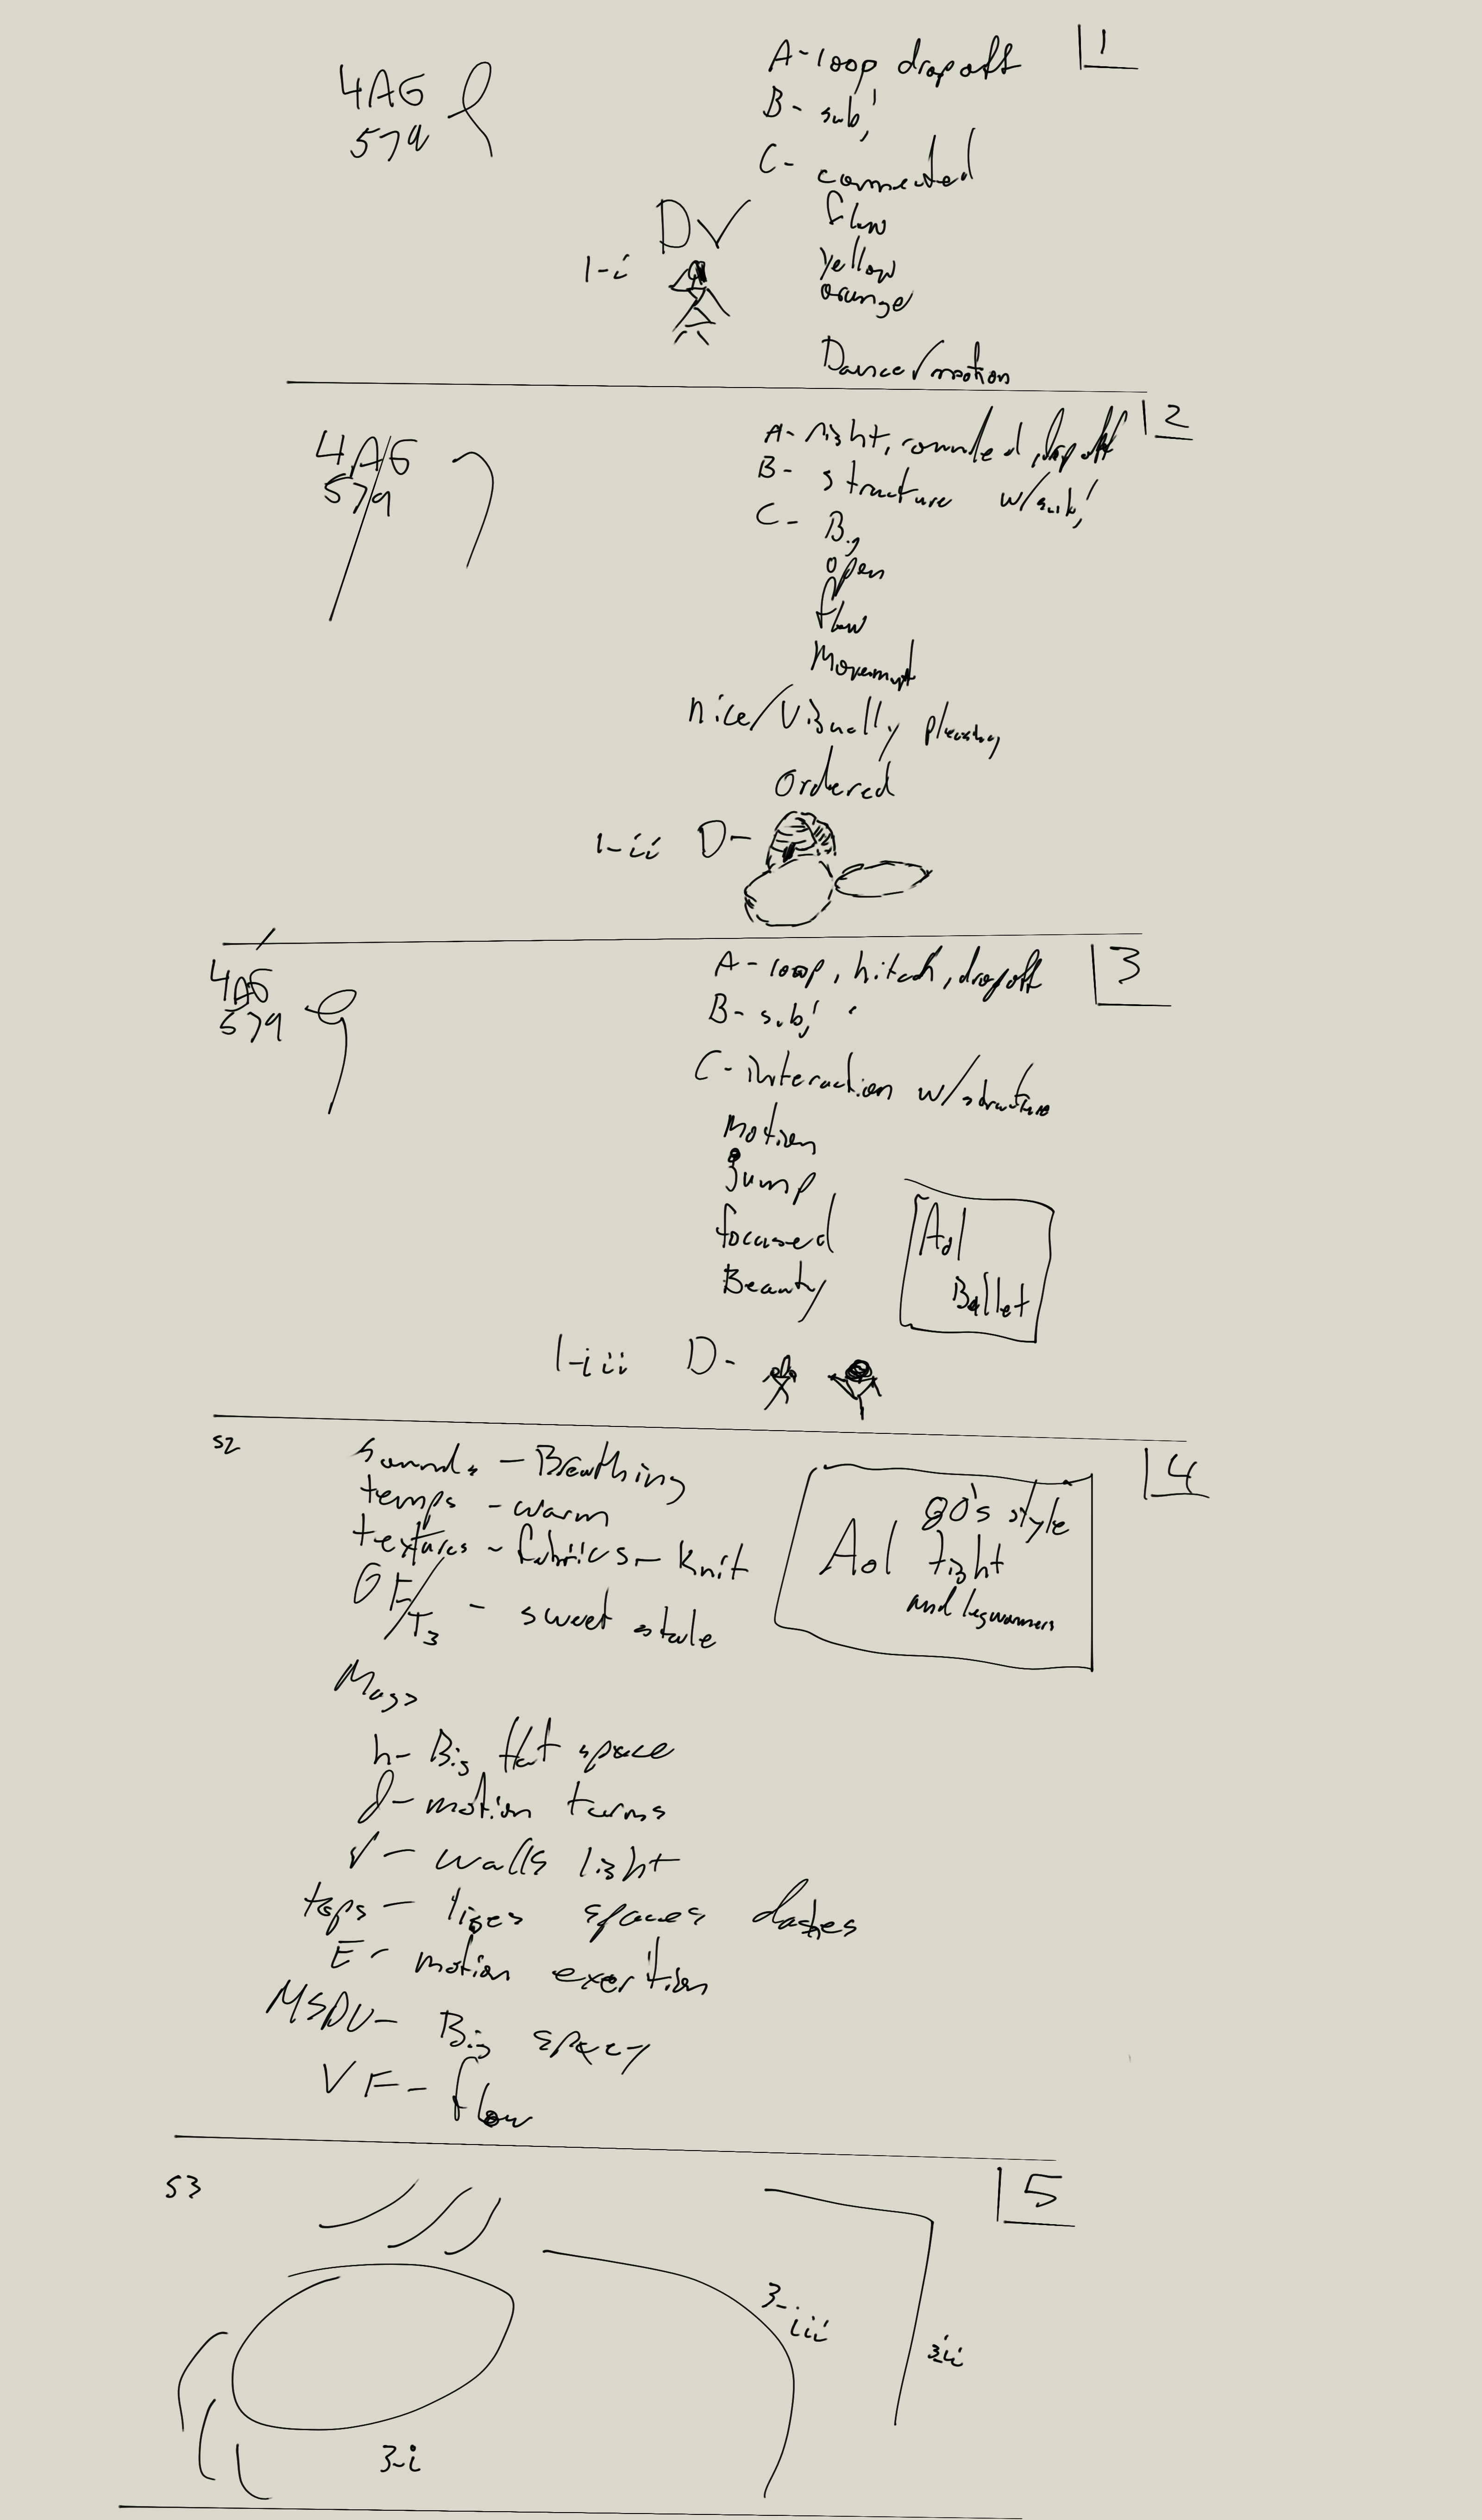 4AG
579
A- loop dropoff
1
B- sub!
C- connected
flow
yellow
orange
Dance/motion
1-i
D
4AG
579
A- right, rounded, dropoff
2
B- structure w/sub!
C- Big
open
flow
Movement
nice/Visually pleasing
Ordered
1-ii D-
4AG
579
A- loop, hitch, dropoff
3
B- sub!
C- interaction w/structure
Motion
Jump
focused
Beauty
Aol
Ballet
1-iii D-
S2
4
Sounds - Breathing
temps - warm
textures - fabrics - Knit
- sweet stale
80's style
Aol tight
and legwarmers
Mags
h- Big flat space
d- motion turns
v- walls light
spaces dashes
E- motion exertion
Big
VF- flow
S3
5
3-iii
3-ii
3-i